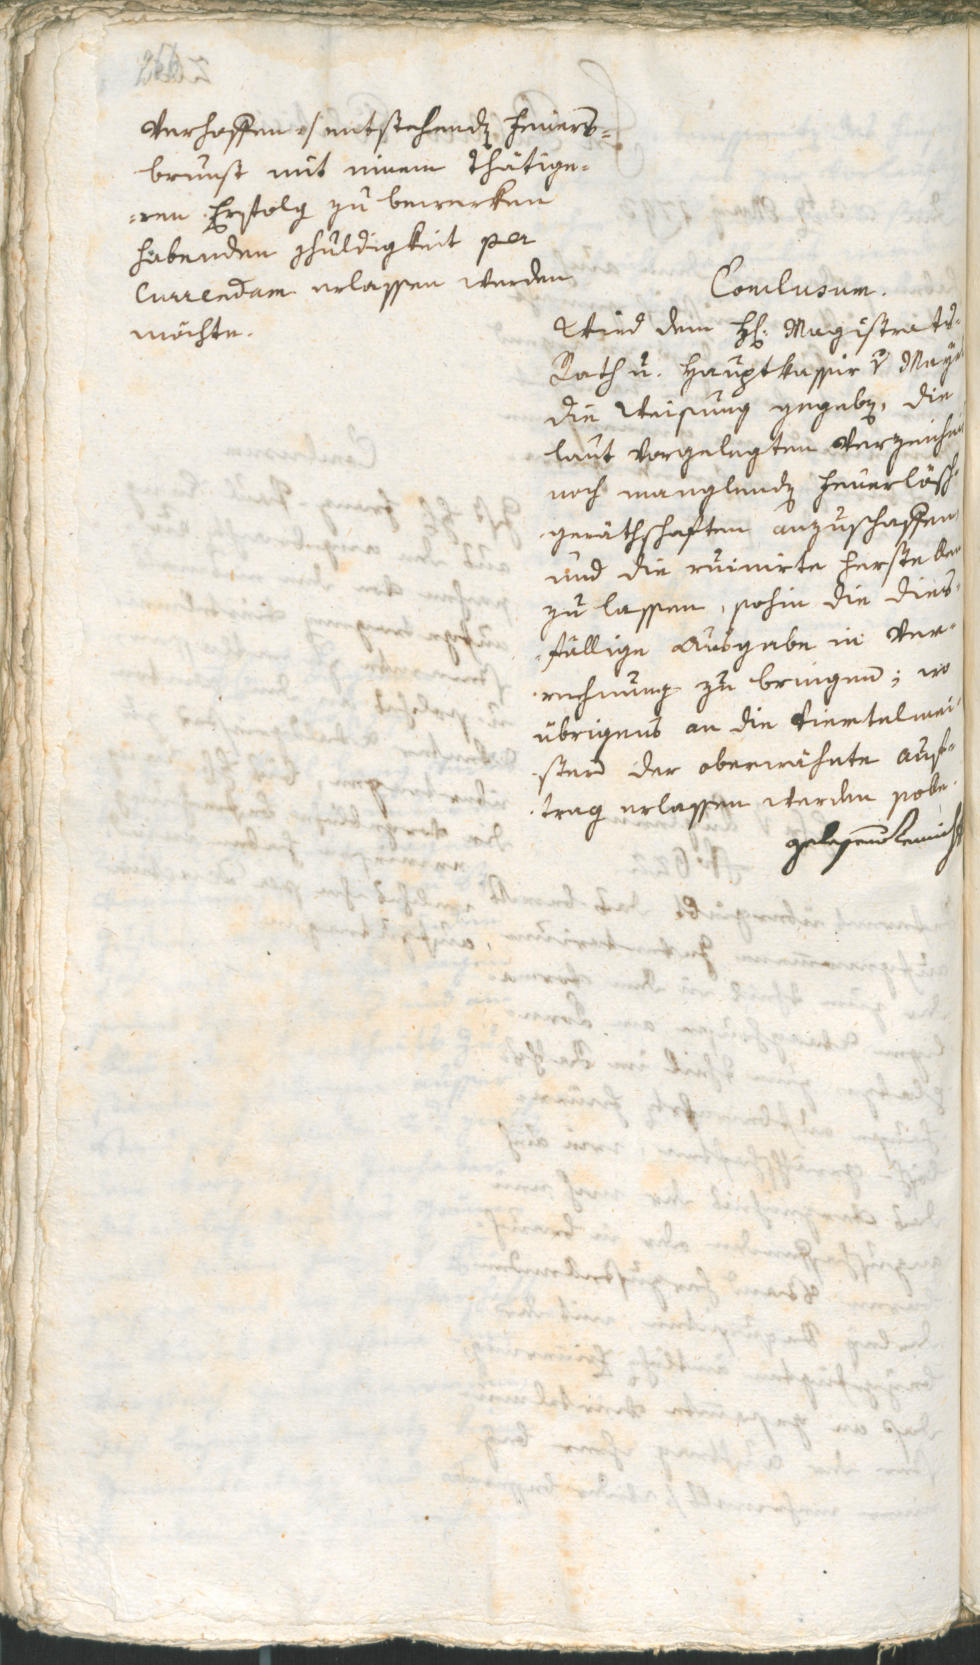 verhoffen :/ entstehendẽ Feuers=
brunst mit einem thätige=
=ren Erfolg zu bewirken
habenden Schuldigkeit per
Currendam erlassen werden
möchte.
Conclusum.
Wird dem H: Magistrats-
Rath u. Hauptkassir v Mayr
die Weisung gegebẽ, die
laut vorgelegten Verzeichniß
noch manglendẽ Feuerlösch-
geräthschaften anzuschaffen,
und die ruinirte herstellen
zu lassen, sohin die dies-
fällige Ausgabe in Ver-
rechnung zu bringen; wo
übrigens an die Viertelmei-
stern der oberwähnte Auf-
trag erlassen werden solle.